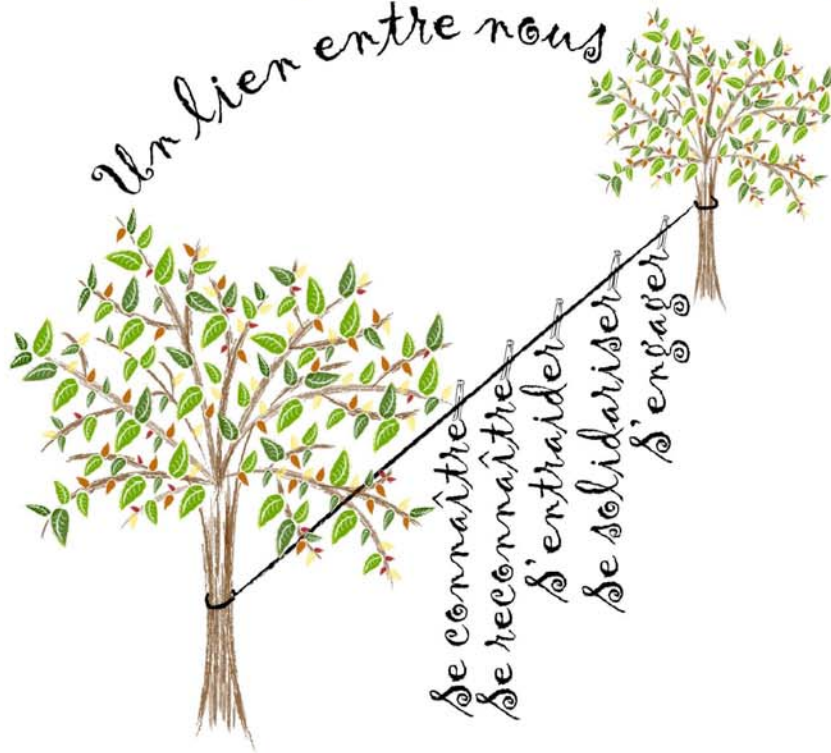 Un lien entre nous
Se connaître
Se reconnaître
S'entraider
Se solidariser
S'engager